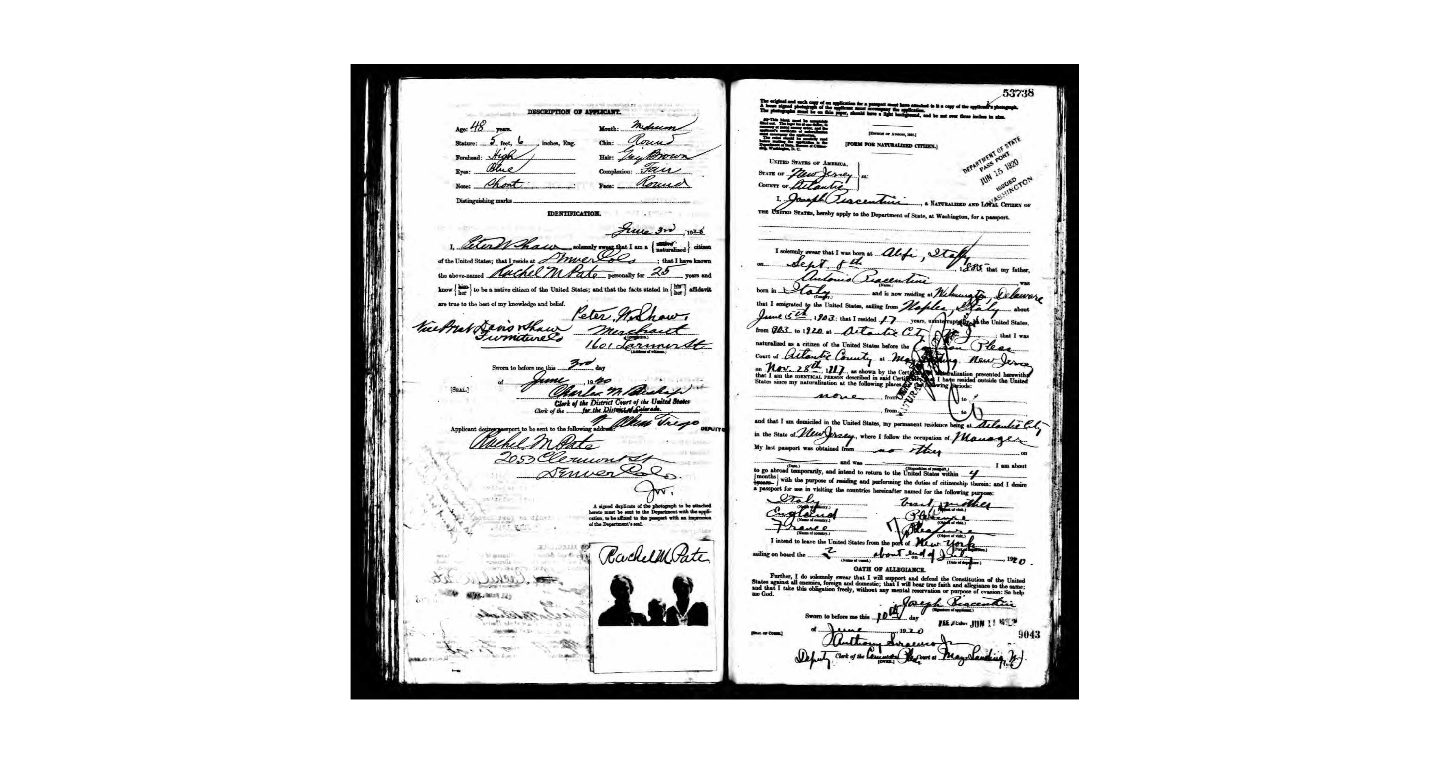 DESCRIPTION OF APPLICANT.
Age: 48 years. Mouth: Medium
Stature: 5 feet, 6 inches, Eng. Chin: Round
Forehead: High Hair: Gray Brown
Eyes: Blue Complexion: Fair
Nose: Short Face: Round
Distinguishing marks
IDENTIFICATION.
June 3rd, 1920
I, Peter W Shaw, solemnly swear that I am a {native naturalized} citizen
of the United States; that I reside at Denver Colo; that I have known
the above-named Rachel M Pate personally for 25 years and
know {him her} to be a native citizen of the United States; and that the facts stated in {his her} affidavit
are true to the best of my knowledge and belief.
Peter W. Shaw,
Vice Pres't Davis & Shaw Merchant
Furniture Co 1601 Larimer St
(Address of witness.)
Sworn to before me this 3rd day
[SEAL.] of June, 1920
Charles M Bishop
Clerk of the District Court of the United States
Clerk of the for the District of Colorado.
DEPUTY
Applicant desires passport to be sent to the following address:
Rachel M Pate
2053 Clermont St
Denver Colo.
A signed duplicate of the photograph to be attached
hereto must be sent to the Department with the appli-
cation, to be affixed to the passport with an impression
of the Department's seal.
Rachel M Pate
53738
The original and each copy of an application for a passport must have attached to it a copy of the applicant's photograph.
A loose signed photograph of the applicant must accompany the application.
The photographs must be on thin paper, should have a light background, and be not over three inches in size.
[FORM FOR NATURALIZED CITIZEN.]
DEPARTMENT OF STATE
PASSPORT
JUN 15 1920
ISSUED
WASHINGTON
UNITED STATES OF AMERICA,
STATE OF New Jersey ss:
COUNTY OF Atlantic
I, Joseph Piacentini, a NATURALIZED AND LOYAL CITIZEN OF
THE UNITED STATES, hereby apply to the Department of State, at Washington, for a passport.
I solemnly swear that I was born at Alife, Italy
on Sept. 8th, 1885 that my father,
Antonio Piacentini was
(Name.)
born in Italy and is now residing at Wilmington, Delaware
(Country.)
that I emigrated to the United States, sailing from Naples, Italy about
June 5th, 1903; that I resided 17 years, uninterruptedly, in the United States,
from 1903 to 1920 at Atlantic City N J; that I was
naturalized as a citizen of the United States before the Common Pleas
Court of Atlantic County at Mays Landing New Jersey
on Nov. 28th, 1917, as shown by the Certificate of Naturalization presented herewith;
that I am the IDENTICAL PERSON described in said Certificate; that I have resided outside the United
States since my naturalization at the following places for the following periods:
none, from to
, from to
and that I am domiciled in the United States, my permanent residence being at Atlantic City
in the State of New Jersey, where I follow the occupation of Manager
My last passport was obtained from no other on
and was I am about
(Date.) (Disposition of passport.)
to go abroad temporarily, and intend to return to the United States within 4
{months years} with the purpose of residing and performing the duties of citizenship therein; and I desire
a passport for use in visiting the countries hereinafter named for the following purpose:
Italy visit mother
(Name of country.) (Object of visit.)
England Pleasure
(Name of country.) (Object of visit.)
France Pleasure
(Name of country.) (Object of visit.)
I intend to leave the United States from the port of New York
(Port of departure.)
sailing on board the ? about end of July, 1920.
(Name of vessel.) (Date of departure.)
OATH OF ALLEGIANCE.
Further, I do solemnly swear that I will support and defend the Constitution of the United
States against all enemies, foreign and domestic; that I will bear true faith and allegiance to the same;
and that I take this obligation freely, without any mental reservation or purpose of evasion: So help
me God.
Joseph Piacentini
(Signature of applicant.)
Sworn to before me this 10th day
of June, 1920 JUN 11
9043
[SEAL OF COURT.] Anthony Jr
Deputy Clerk of the Common Pleas Court at Mays Landing, N J.